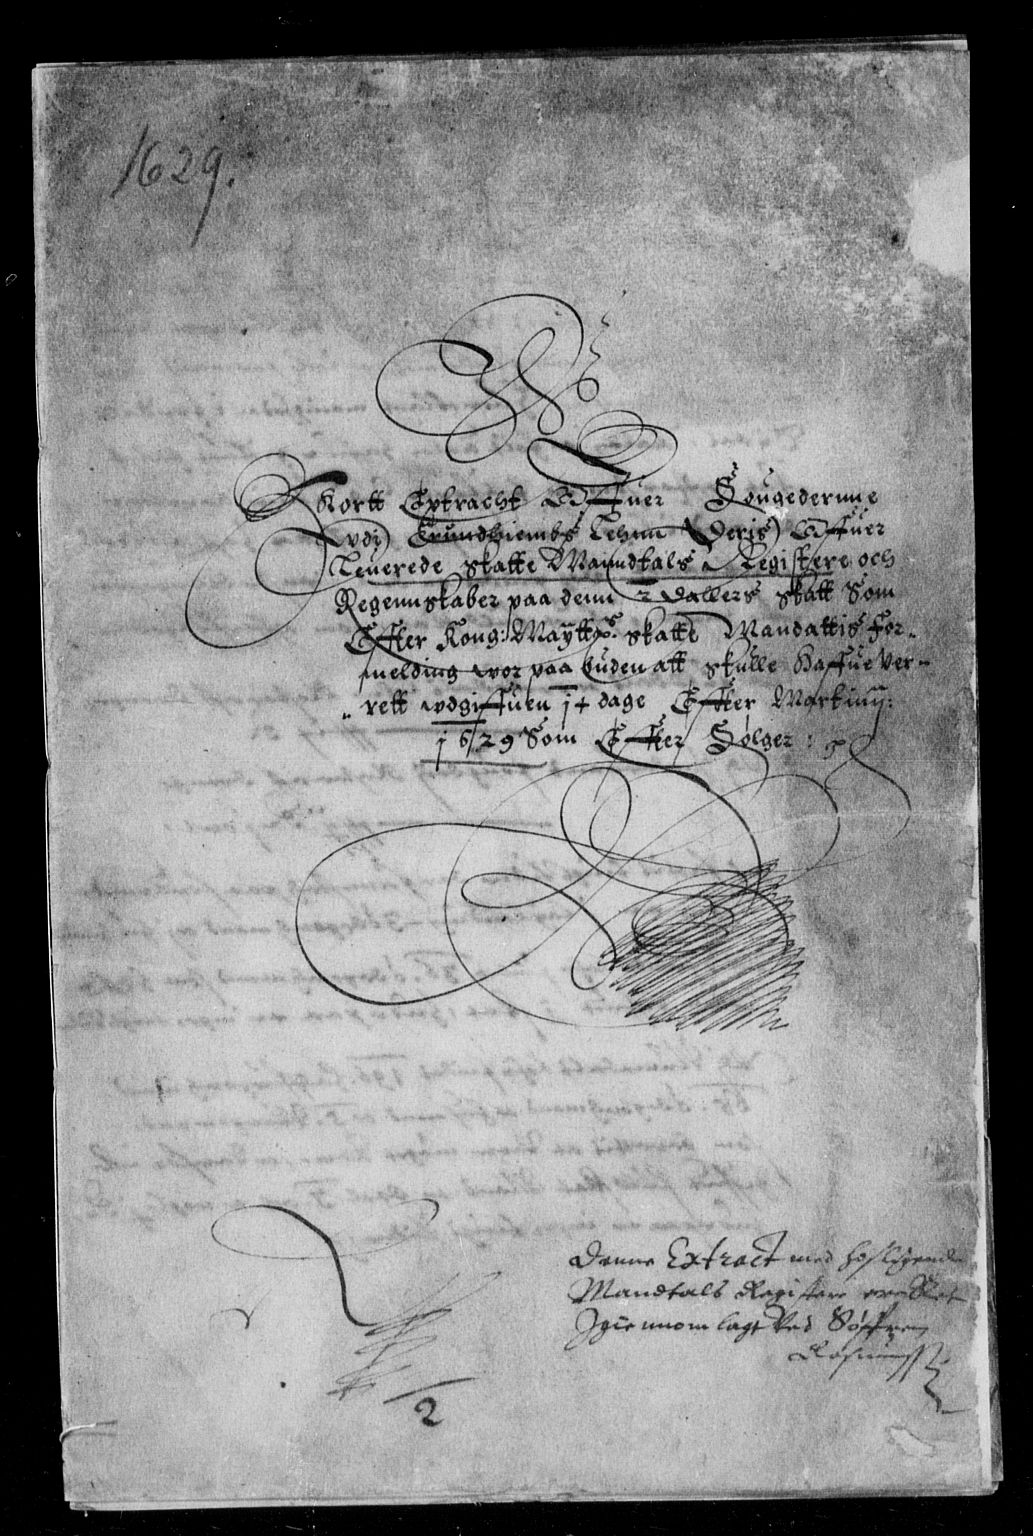 1629.
Kortt Extracht Offuer Fougedernne
Udj Trundhiembs Lehnn Deris Offuer
Leuerede skatte Manndtals Registere och
Regennskaber paa denn 2 Dallers skatt Som
Effter Kong: Maytts. skatte Mandattis For-
melding wor paa buden att skulle Haffue Ver-
rett udgiffuen 14 dage Effter Martinij:
1629 Som Effter Følger:
Denne Extract med hosligende
Mandtals Registere er
Igiennom lagt Ved Søffren
2